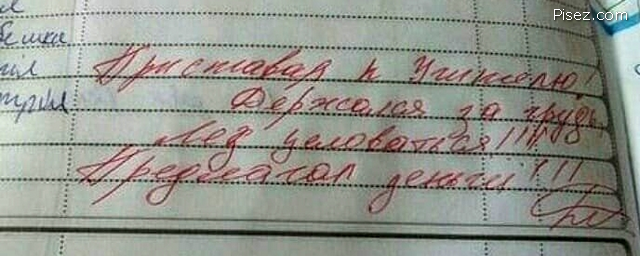 Pisez.com
ешки
Приставал к Учителю!
Держался за грудь,
Лез целоваться!!!!
Предлагал деньги!!!